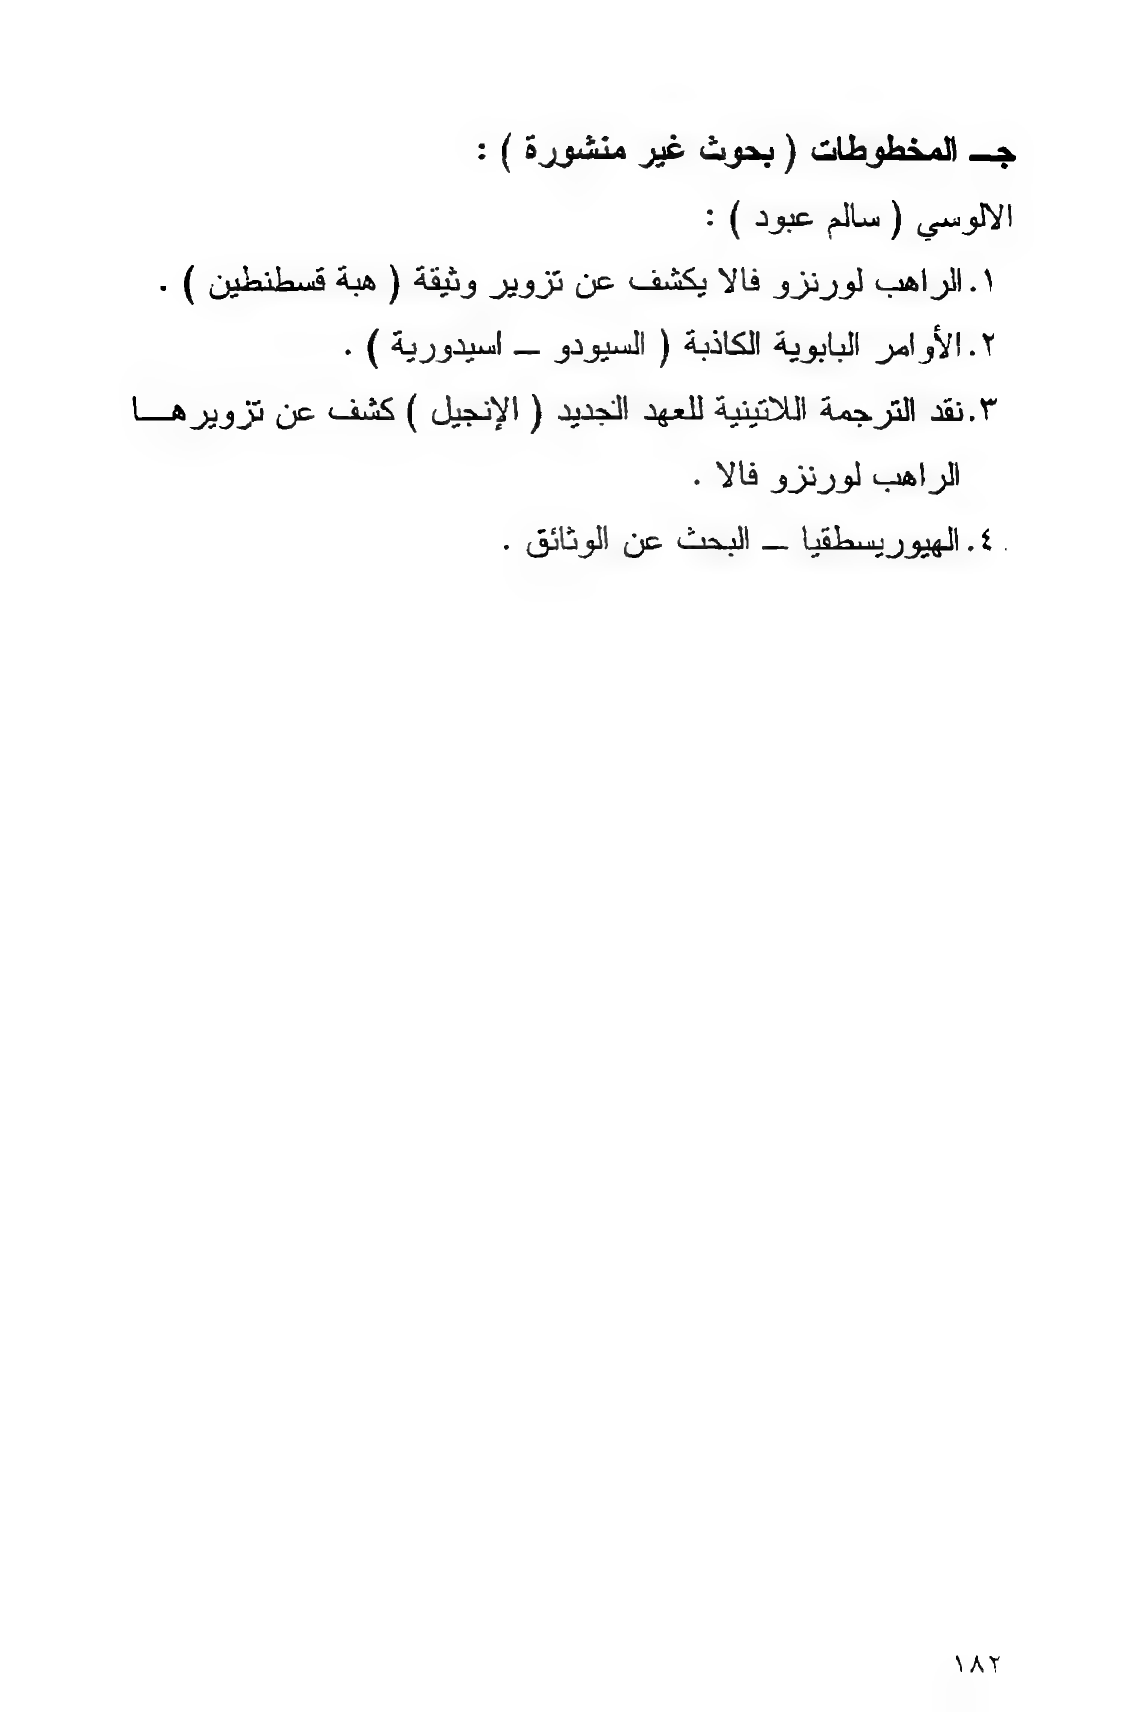 جـــ المخطوطات ( بحوث غير منشورة ) :
الالوسي ( سالم عبود ) :
١.الراهب لورنزو فالا يكشف عن تزوير وثيقة ( هبة قسطنطين ) .
٢.الأوامر البابوية الكاذبة ( السيودو – اسيدورية ) .
٣.نقد الترجمة اللاتينية للعهد الجديد ( الإنجيل ) كشف عن تزويرهـــا
الراهب لورنزو فالا .
٤.الهيوريسطقيا – البحث عن الوثائق .
١٨٢